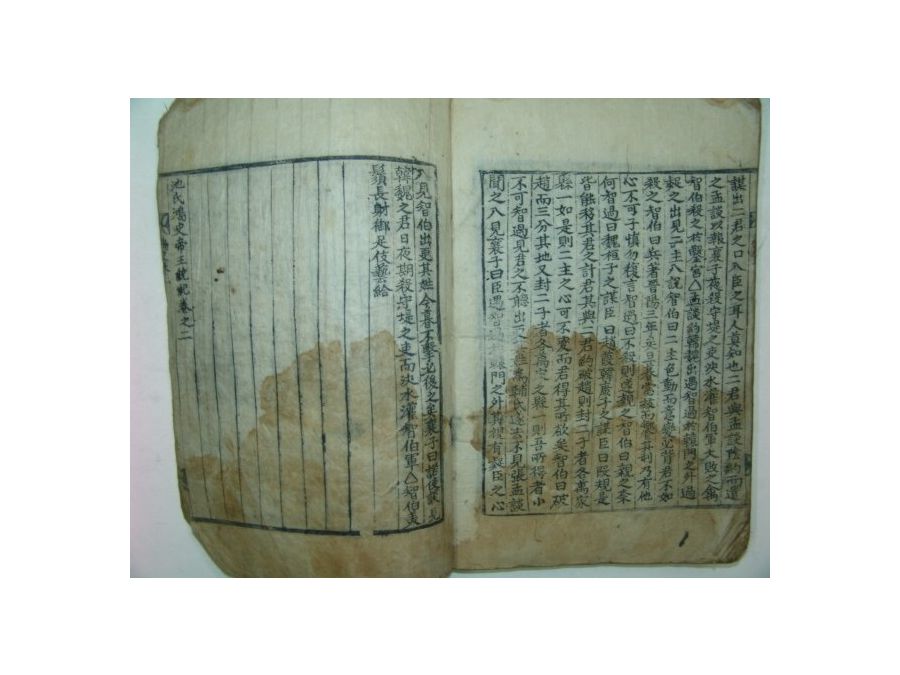 謀出二君之口入臣之耳人莫知也二君與孟談陰約而還
之孟談以報襄子夜殺守堤之吏決水灌智伯軍大敗之擒
智伯殺之於鑿宮△孟談約韓魏出遇智過於轅門之外過
之出見二主入說智伯曰二主色動而意變必背君不如
殺之智伯曰兵著晉陽三年矣旦暮當拔而饗其利乃有他
心不可子慎勿復言智過曰不殺則遂親之智伯曰親之奈
何智過曰魏桓子之謀臣曰趙葭韓康子之謀臣曰段規是
皆能移其君之計君其與二君約破趙則封二子者各萬家
縣一如是則二主之心可不變而君得其所欲矣智伯曰破
趙而三分其地又封二子者各萬家之縣一則吾所得者小
不可智過見君之不聽出而更姓為輔氏遂去不見張孟談
聞之入見襄子曰臣遇智過於轅門之外其視有疑臣之心
入見智伯出更其姓今暮不擊必後之矣襄子曰諾使談見
韓魏之君曰夜期殺守堤之吏而決水灌智伯軍△智伯美
鬚長射御足伎藝給
池氏鴻史帝王統紀卷之二